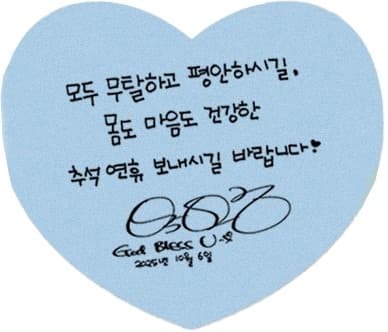 모두 무탈하고 평안하시길,
몸도 마음도 건강한
추석 연휴 보내시길 바랍니다♥
God BLESS U
2025년 10월 6일